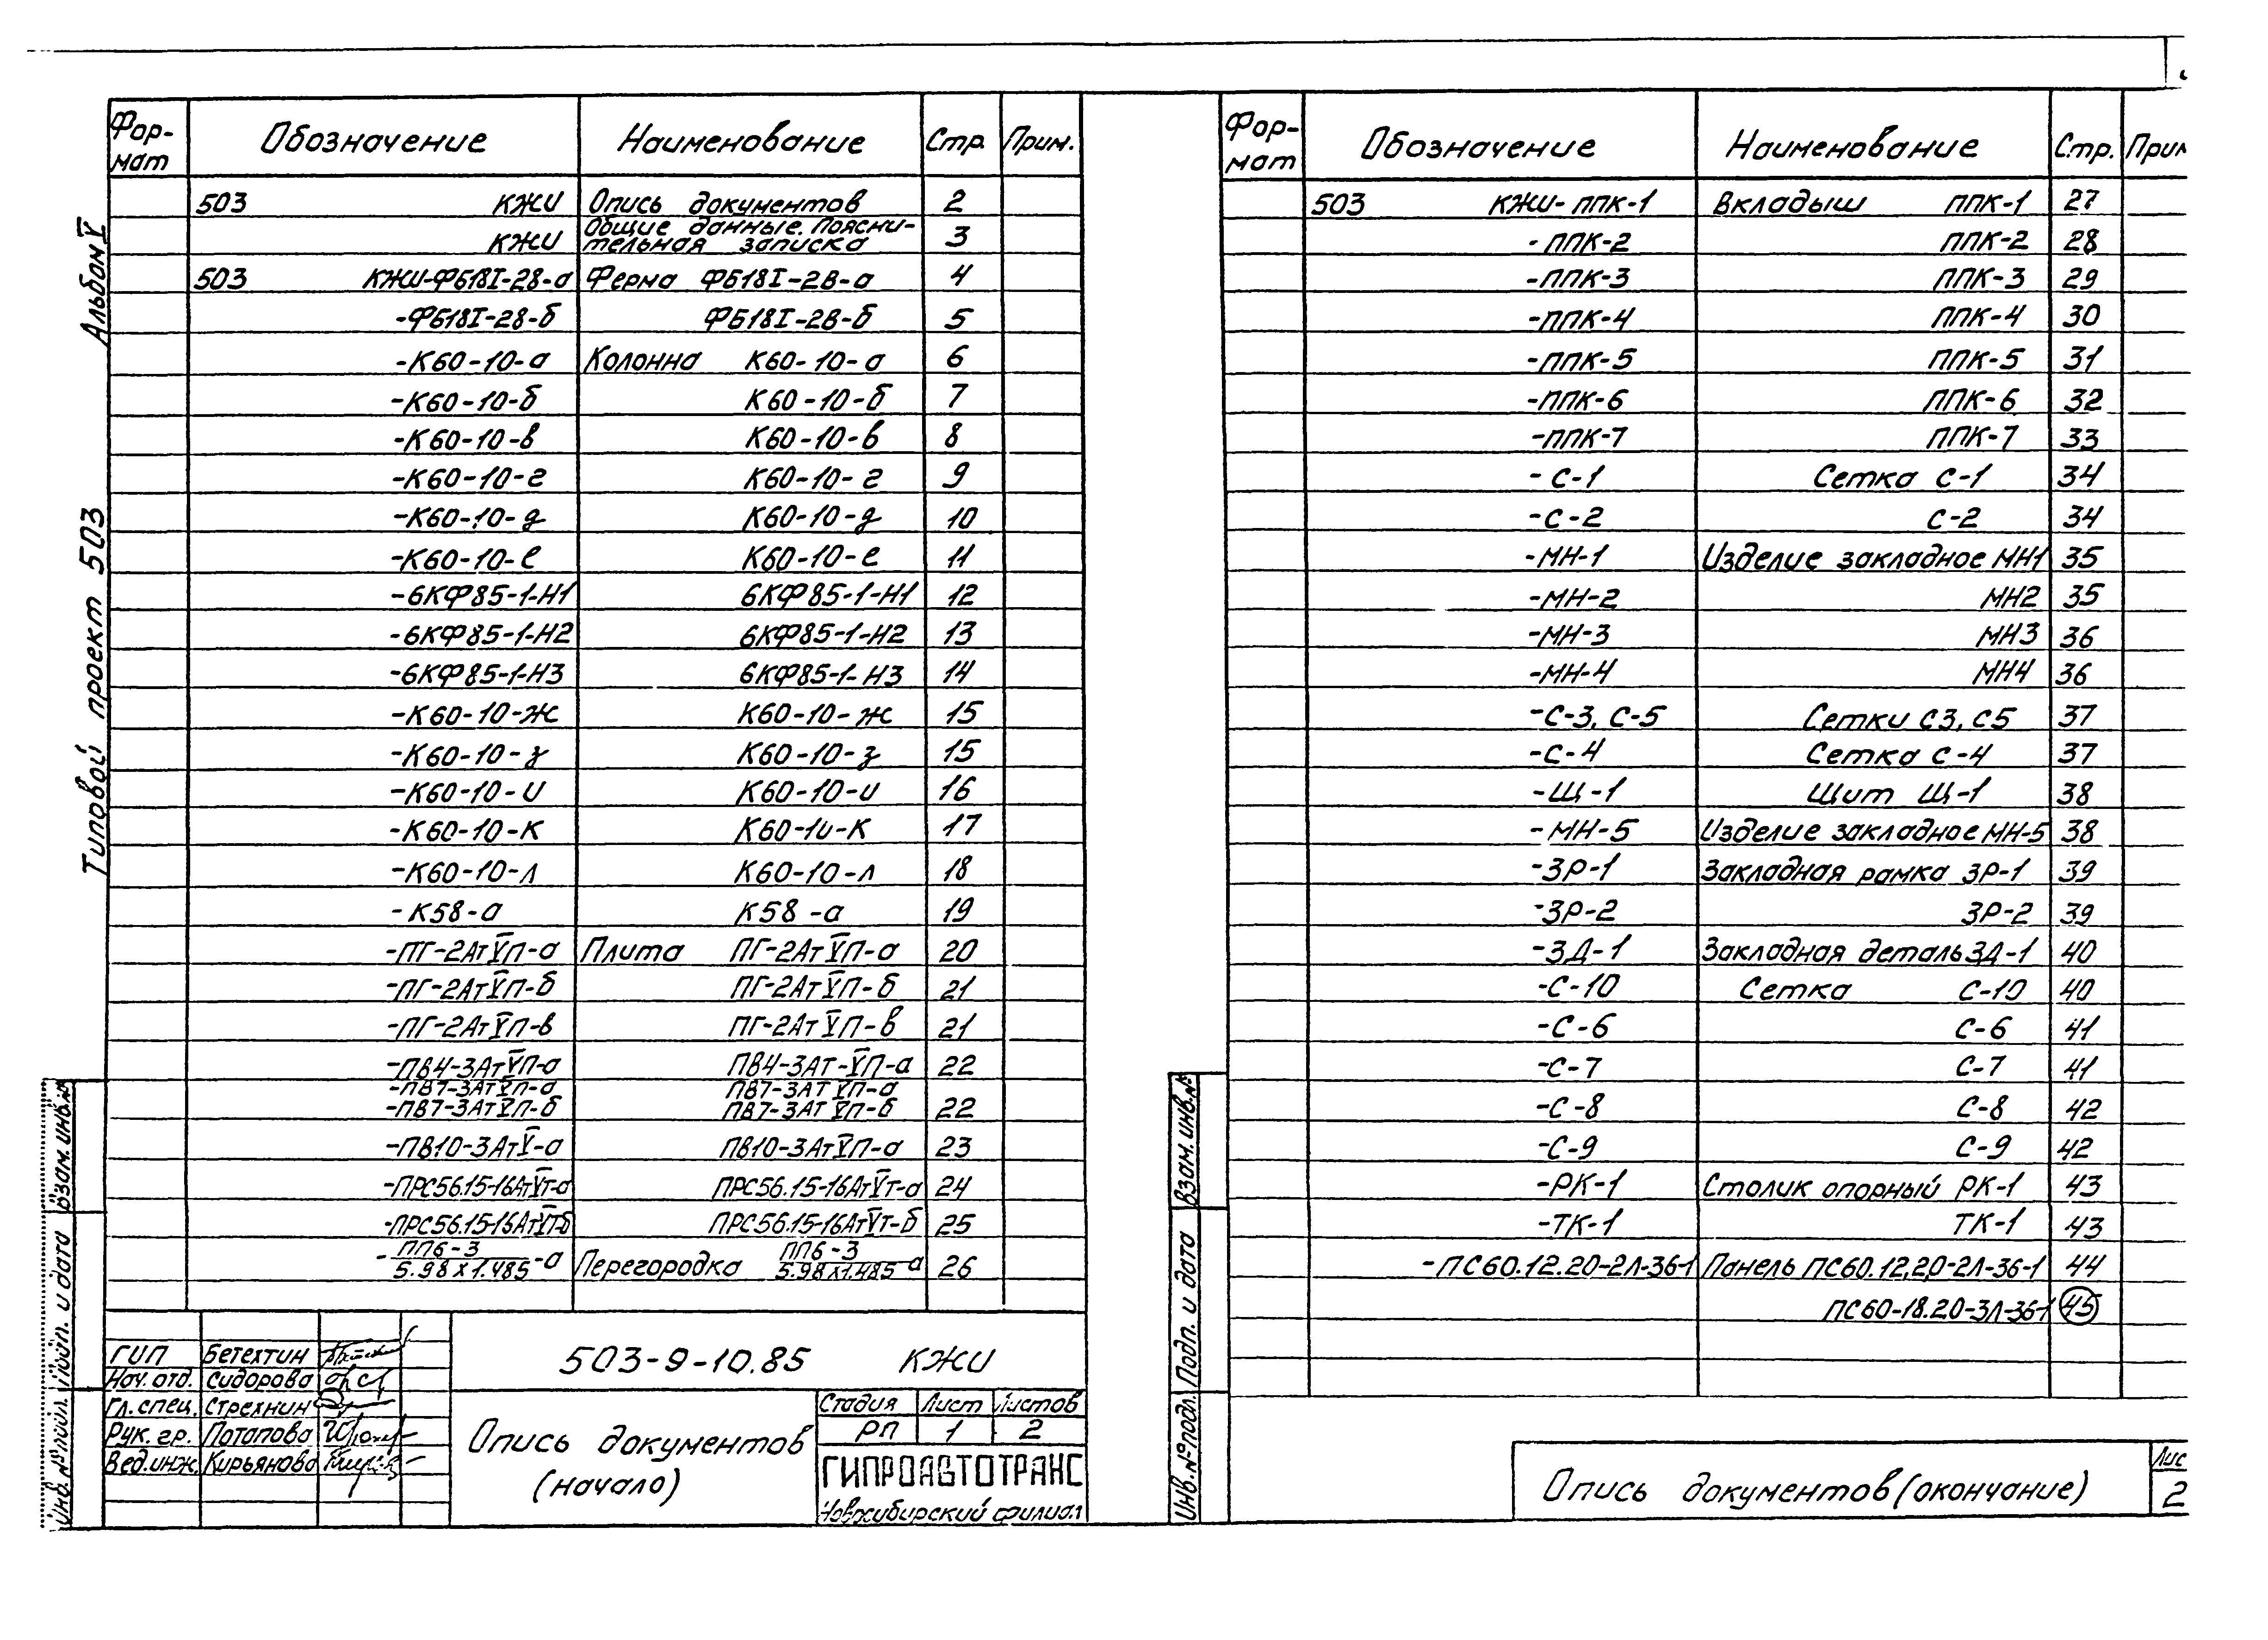 Альбом V
Типовой проект 503
Фор-мат Обозначение Наименование Стр. Прим.
503 КЖИ Опись документов 2
КЖИ Общие данные. Поясни-тельная записка 3
503 КЖИ-ФБ18I-28-а Ферма ФБ18I-2В-а 4
-ФБ18I-28-б ФБ18I-2В-б 5
-К60-10-а Колонна К60-10-а 6
-К60-10-б К60-10-б 7
-К60-10-в К60-10-в 8
-К60-10-г К60-10-г 9
-К60-10-д К60-10-д 10
-К60-10-е К60-10-е 11
-6КФ85-1-Н1 6КФ85-1-Н1 12
-6КФ85-1-Н2 6КФ85-1-Н2 13
-6КФ85-1-Н3 6КФ85-1-Н3 14
-К60-10-ж К60-10-ж 15
-К60-10-з К60-10-з 15
-К60-10-и К60-10-и 16
-К60-10-К К60-10-К 17
-К60-10-л К60-10-л 18
-К58-а К58-а 19
-ПГ-2АтVП-а Плита ПГ-2АтVП-а 20
-ПГ-2АтVП-б ПГ-2АтVП-б 21
-ПГ-2АтVП-в ПГ-2АтVП-в 21
-ПВ4-3АтVП-а ПВ4-3Ат-VП-а 22
-ПВ7-3АтVП-а ПВ7-3АТVП-а
-ПВ7-3АтVП-б ПВ7-3АТVП-б 22
-ПВ10-3АтV-а ПВ10-3АтVП-а 23
-ПРС56.15-16АтVт-а ПРС56.15-16АтVт-а 24
-ПРС56.15-16АтVТ-б ПРС56.15-16АтVт-б 25
-ПП6-3/5.98х1.485-а Перегородка ПП6-3/5.98х1.485-а 26
ГИП Бетехтин
Нач. отд. Сидорова
Гл. спец. Стрехнин
Рук. гр. Потапова
Вед. инж. Кирьянова
503-9-10.85 КЖИ
Опись документов
(начало)
Стадия Лист Листов
РП 1 2
ГИПРОАВТОТРАНС
Новосибирский филиал
Взам. инв. №
Подп. и дата
Инв. № подл.
Фор-мат Обозначение Наименование Стр. Прим
503 КЖИ-ППК-1 Вкладыш ППК-1 27
-ППК-2 ППК-2 28
-ППК-3 ППК-3 29
-ППК-4 ППК-4 30
-ППК-5 ППК-5 31
-ППК-6 ППК-6 32
-ППК-7 ППК-7 33
-С-1 Сетка С-1 34
-С-2 С-2 34
-МН-1 Изделие закладное МН1 35
-МН-2 МН2 35
-МН-3 МН3 36
-МН-4 МН4 36
-С-3, С-5 Сетки С3, С5 37
-С-4 Сетка С-4 37
-Щ-1 Щит Щ-1 38
-МН-5 Изделие закладное МН-5 38
-ЗР-1 Закладная рамка ЗР-1 39
-ЗР-2 ЗР-2 39
-ЗД-1 Закладная деталь ЗД-1 40
-С-10 Сетка С-10 40
-С-6 С-6 41
-С-7 С-7 41
-С-8 С-8 42
-С-9 С-9 42
-РК-1 Столик опорный РК-1 43
-ТК-1 ТК-1 43
-ПС60.12.20-2Л-36-1 Панель ПС60.12,20-2Л-36-1 44
ПС60-18.20-3Л-36-1 45
Взам. инв. №
Подп. и дата
Инв. № подл.
Опись документов (окончание)
Лис
2